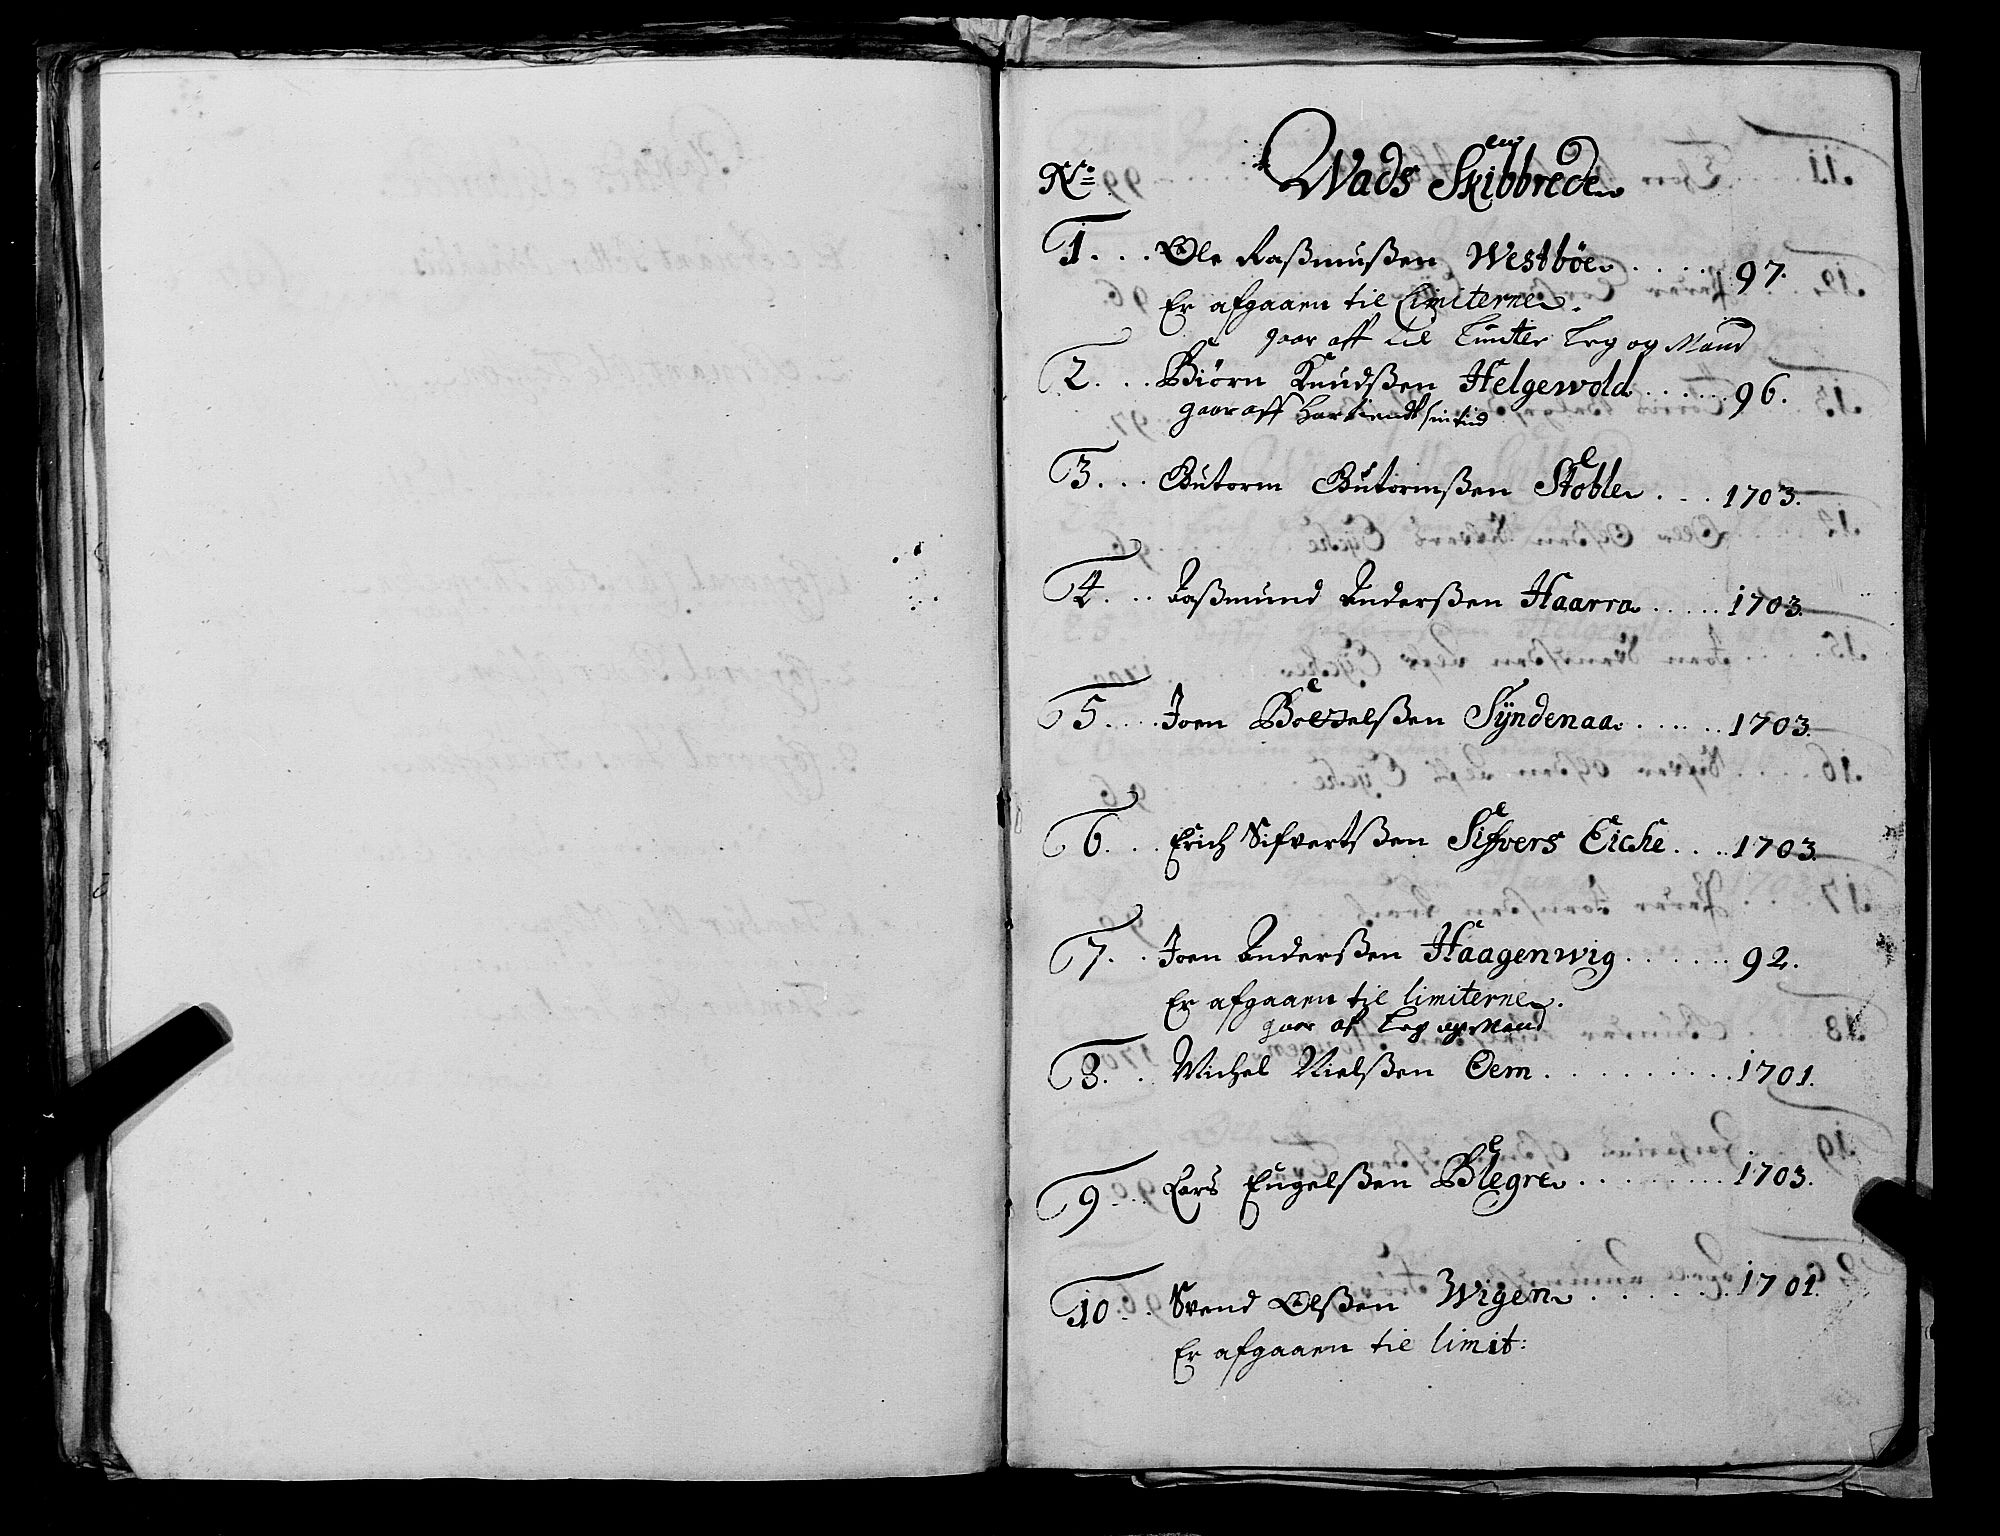 No: Wads Skibbrede
1. . . . Ole Raßmußen Westbøe . . . . . 97.
Er afgaaen til Limiterne.
gaar aff til Limiter Leg og Mand
2. . . . Biørn Knudßen Helgewold . . . . . . 96.
gaar aff har tient sin tid
3. . . . Gutorm Gutormßen Støble . . . 1703.
4. . . . Raßmund Anderßen Haarra . . . . . 1703.
5. . . . . Joen Botzelßen Syndenaa . . . . . . 1703.
6. . . . Erich Sifvertßen Sifvers Eiche . . . . 1703.
7. . . Joen Anderßen Haagenwig . . . . . . 92.
Er afgaaen til limiterne.
gaar af Leg og Mand
8. . . Michel Nielßen Oem . . . . . . . . . . 1701.
9. . . . Lars Engelßen Blegre . . . . . . . . 1703.
10. . . Svend Olßen Wigen . . . . . . . 1701.
Er afgaaen til limit: